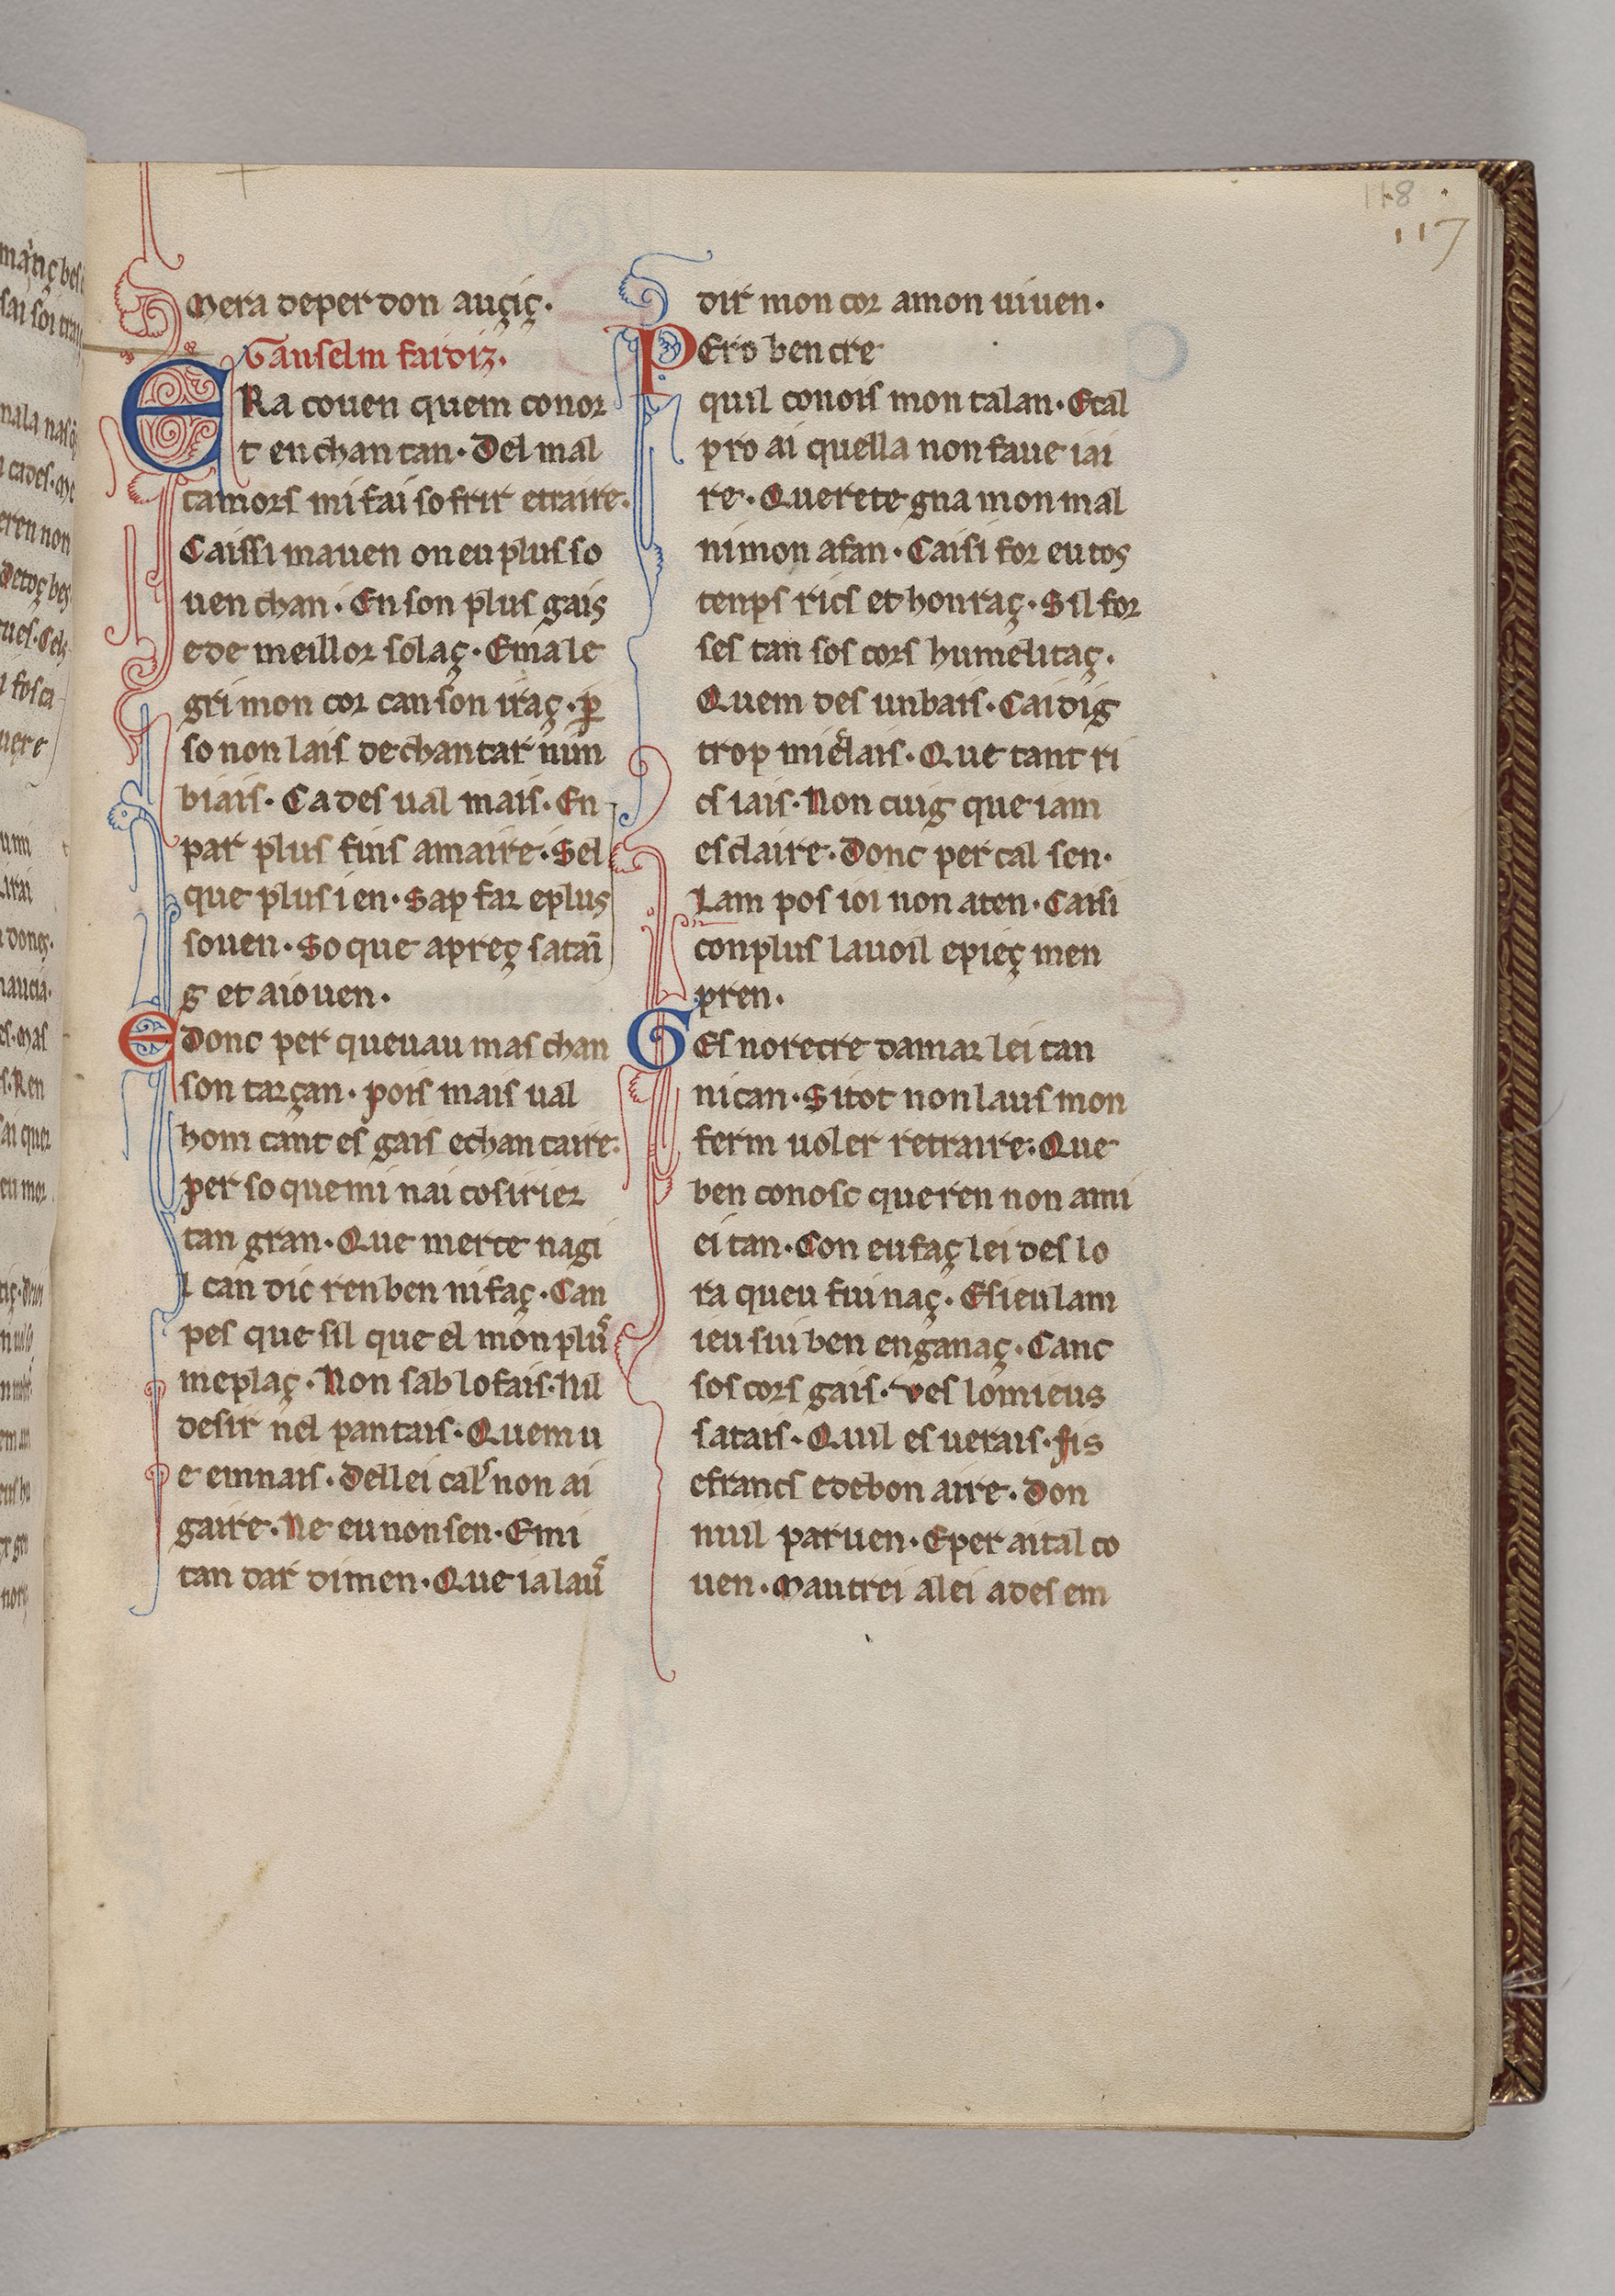 118
117
Mera de per don auçiç·
Ganselm faidiz·
ERa couen quem conor
t en chan tan· Del mal
camors mi fai so frir etraire·
Caissi mauen on eu plus so
uen chan· En son plus gais
e de meillor solaç· Em ale
gri mon cor can son iraç· p̱
so non lais de chantar nim
biais· Cades ual mais· En
par plus fins amaire· Sel
que plus i en· Sap far e plus
souen· So que apreç satañ
g et a iouen·
E donc per que uau mas chan
son tarçan· pois mais ual
hom cant es gais e chan taire·
per so que mi nai cosirier
tan gran· Que merce nagi
l can dic ren ben ni faç· Can
pes que sil que el mon plus
me plaç· Non sab lo fais· Nil
desir nel pantais· Quem u
e em nais· Del lei cals non ai
gaire· Ne eu non sen· Em i
tan dar dimen· Que ia lau
dir mon cor a mon uiuen·
PEro ben cre
quil conois mon talan· E tal
pro ai quella non faue iai
re· Querete gna mon mal
ni mon afan· Caisi for eu tos
tenps rics et honraç· Sil for
ses tan sos cors humelitaç·
Quem des un bais· Cai dig
trop mielais· Que tant ri
cs iais· Non cuig que iam
esclaire· Donc per cal sen·
Lam pos ioi non aten· Caisi
con plus la uoil e pieç men
pren·
GEs no recre damar lei tan
ni can· Si tot non laus mon
ferm uoler retraire· Que
ben conosc que ren non ami
ei tan· Con eu faç lei des lo
ra queu fui naç· E si eu lam
ieu sui ben enganaç· Canc
sos cors gais· Ves lo mieus
satais· Quil es uerais· fis
e francs e de bon aire· Don
nuil par uen· E per aital co
uen· Mautrei a lei ades em